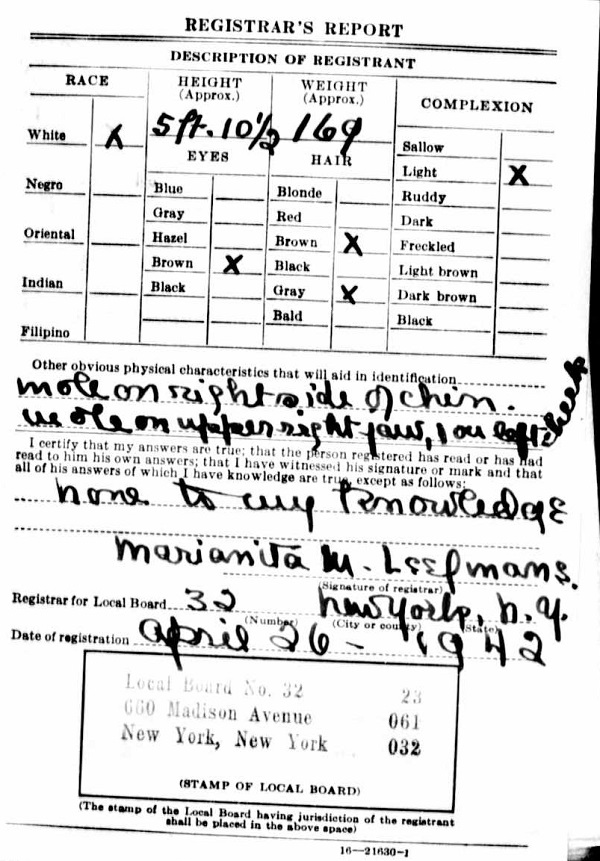 REGISTRAR'S REPORT
DESCRIPTION OF REGISTRANT
RACE HEIGHT (Approx.) WEIGHT (Approx.) COMPLEXION
5 ft. 10 1/2 169
White X
EYES HAIR
Sallow
Light X
Negro Blue Blonde Ruddy
Gray Red Dark
Oriental Hazel Brown X Freckled
Brown X Black Light brown
Indian Black Gray X Dark brown
Bald Black
Filipino
Other obvious physical characteristics that will aid in identification
mole on right side of chin.
mole on upper right jaw, 1 on left cheek
I certify that my answers are true; that the person registered has read or has had
read to him his own answers; that I have witnessed his signature or mark and that
all of his answers of which I have knowledge are true, except as follows:
none to my knowledge
Marianita M. Leefmans.
(Signature of registrar)
Registrar for Local Board 32 New York, N.Y.
(Number) (City or county) (State)
Date of registration April 26 - 1942
Local Board No. 32 23
660 Madison Avenue 061
New York, New York 032
(STAMP OF LOCAL BOARD)
(The stamp of the Local Board having jurisdiction of the registrant
shall be placed in the above space)
16—21630-1